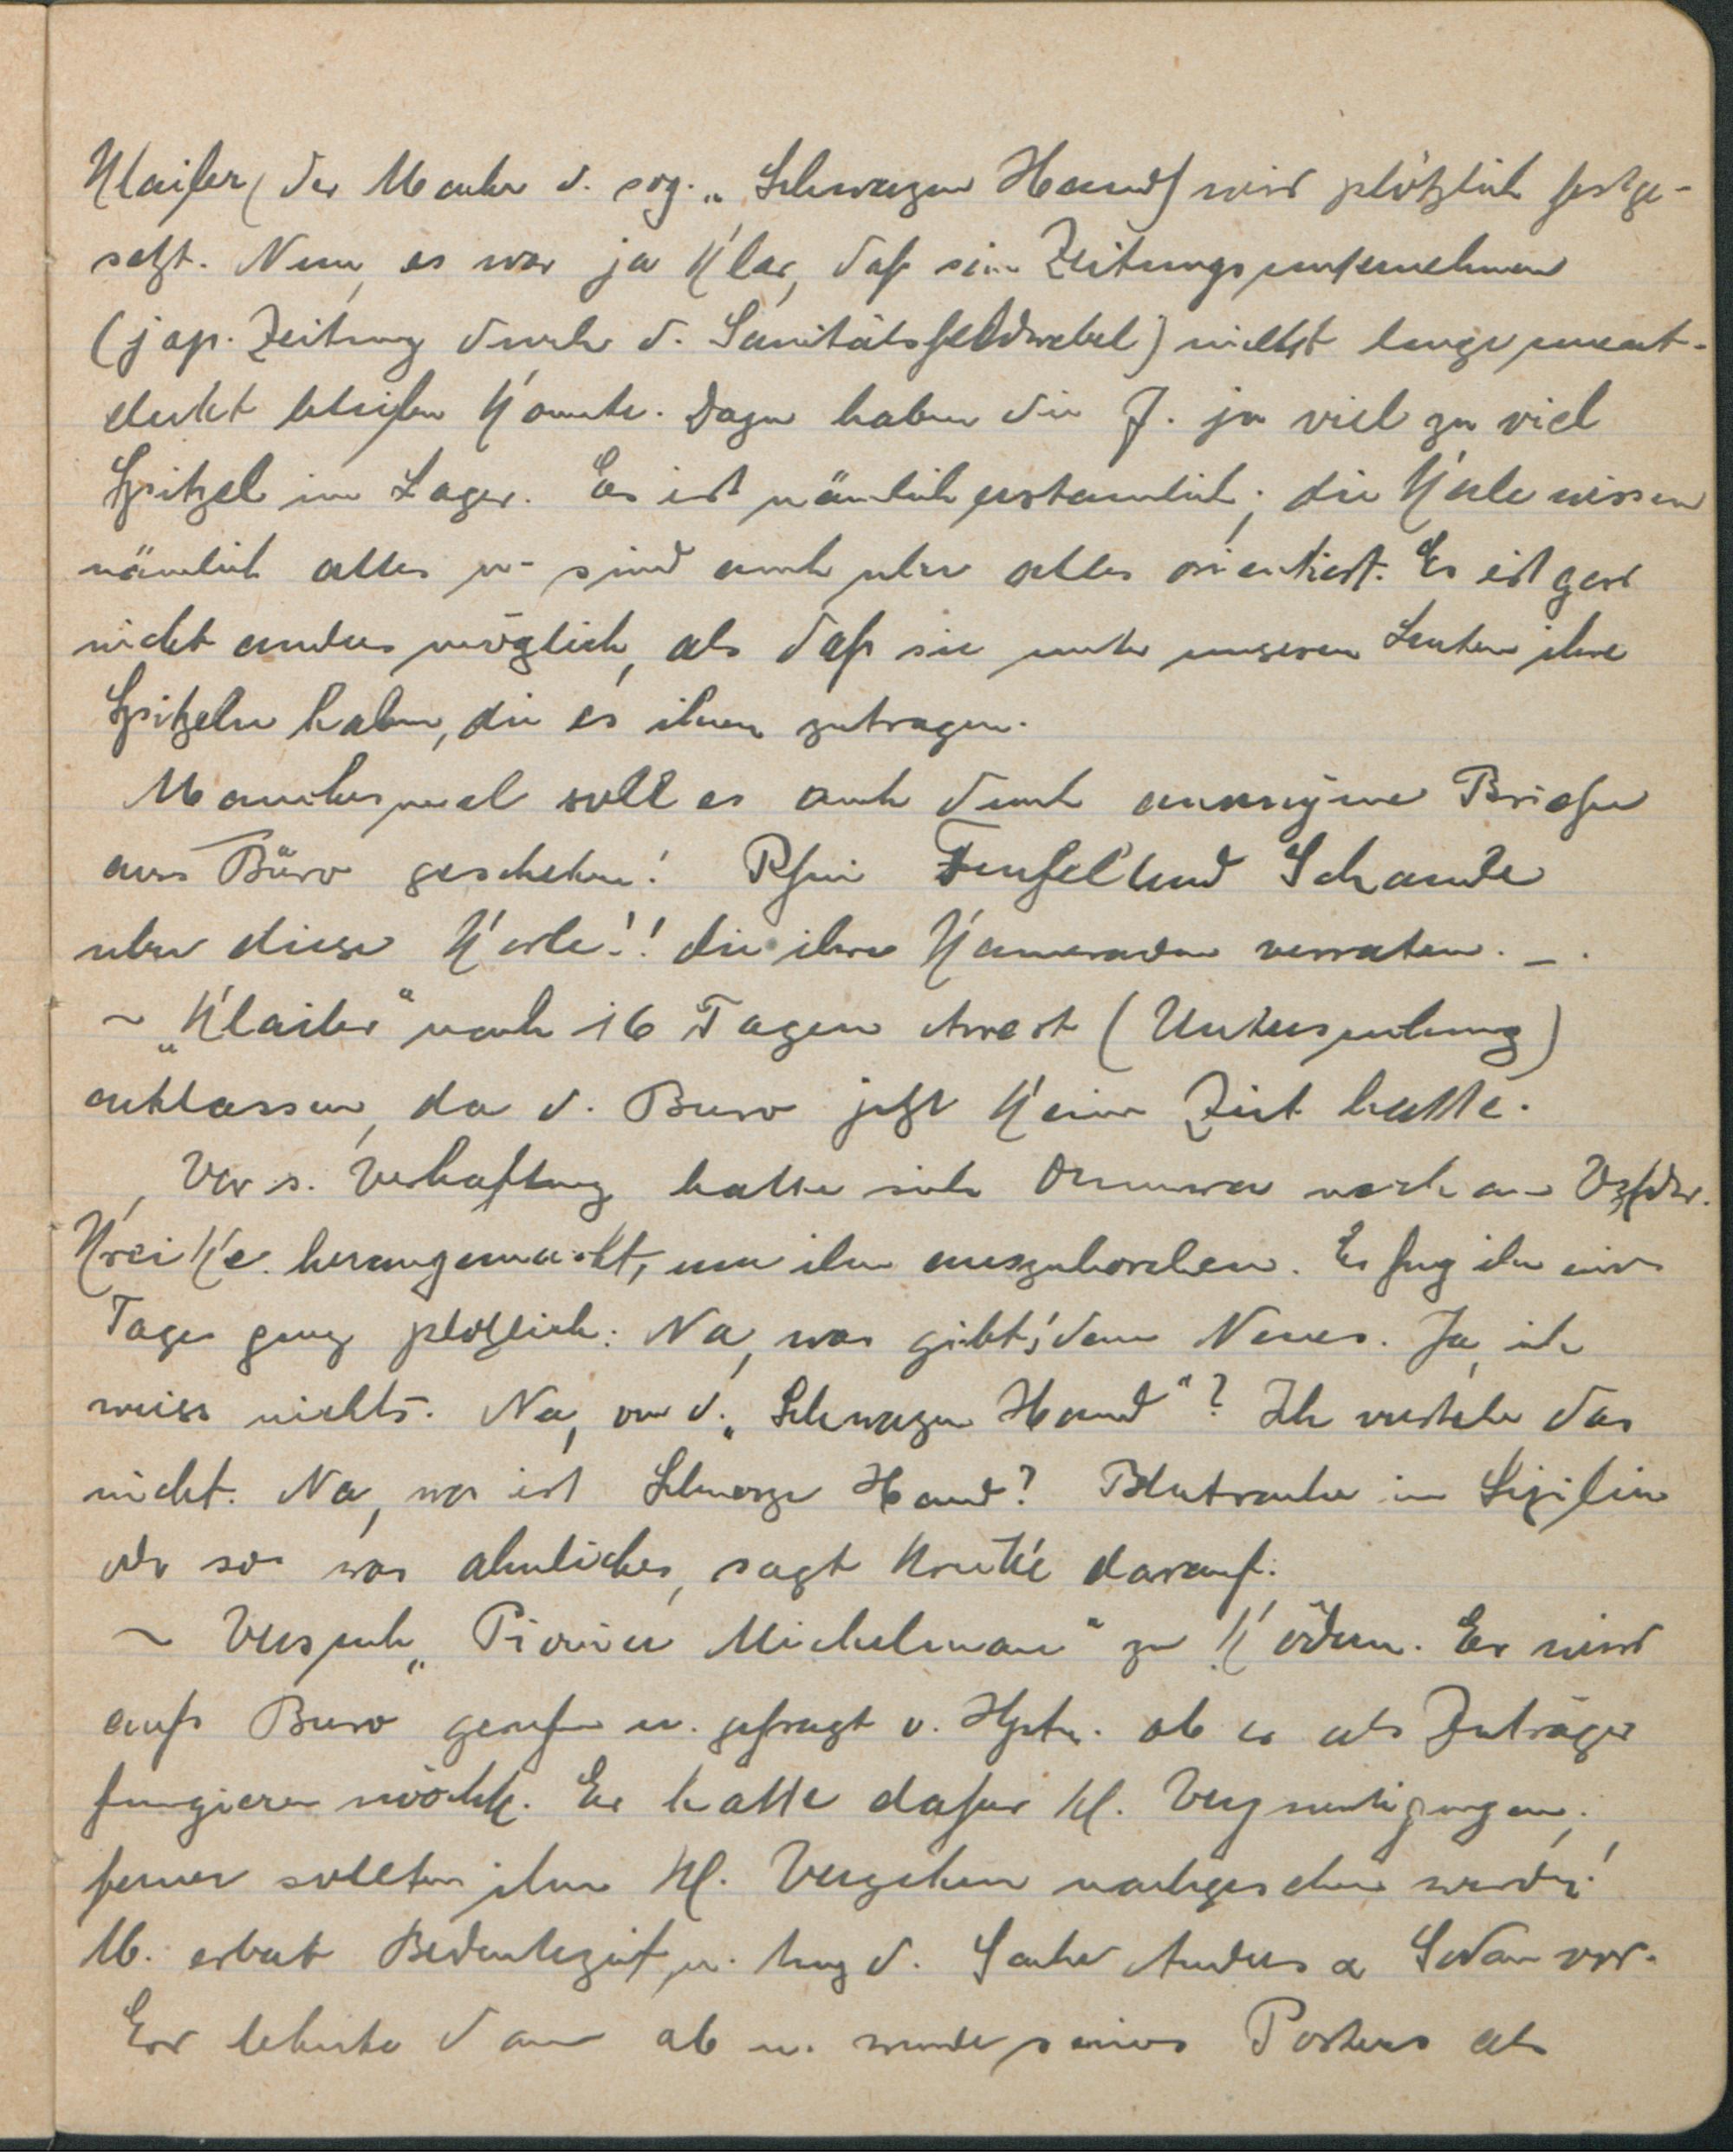 Klaiber (der Macher d. sog. „Schwarzen Hand") wird plötzlich festge-
setzt. Nun, es war ja klar, daß sein Zeitungsunternehmen
(jap. Zeitung durch d. Sanitätsfeldwebel) nicht lange unent-
deckt bleiben konnte. Dazu haben die J. ja viel zu viel
Spitzel im Lager. Es ist nämlich erstaunlich, die Kerle wissen
nämlich alles u. sind auch über alles orientiert. Es ist gar
nicht anders möglich, als daß sie unter unseren Leuten ihre
Spitzeln haben, die es ihnen zutragen.
Manchesmal soll es auch durch anonyme Briefe
ans Büro geschehen! Pfui Teufel und Schande
über diese Kerle!! die ihre Kameraden verraten. _ .
~ „Klaiber" nach 16 Tagen Arrest (Untersuchung)
entlassen, da d. Buro jetzt keine Zeit hatte.
Vor s. Verhaftung hatte sich noch an Vzfdw.
Kreike herangemacht, um ihn auszuhorchen. Er frug ihn eines
Tages ganz plötzlich: Na, was gibt's denn Neues. Ja, ich
weiss nichts. Na, von d. „Schwarzen Hand"? Ich verstehe das
nicht. Na, was ist Schwarze Hand? Blutrache in Sizilien
oder so was ähnliches, sagt Kreike darauf.
~ Versuch „Pionier Michelmann" zu ködern. Er wird
aufs Buro gerufen u. gefragt v. Hptm. ob er als Zuträger
fungieren möchte. Er hätte dafür kl. Vergünstigungen,
ferner sollten ihm kl. Vergehen nachgesehen werden!
M. erbat Bedenkzeit, u. trug d. Sache Anders & vor.
Er lehnte dann ab u. wurde seines Postens als